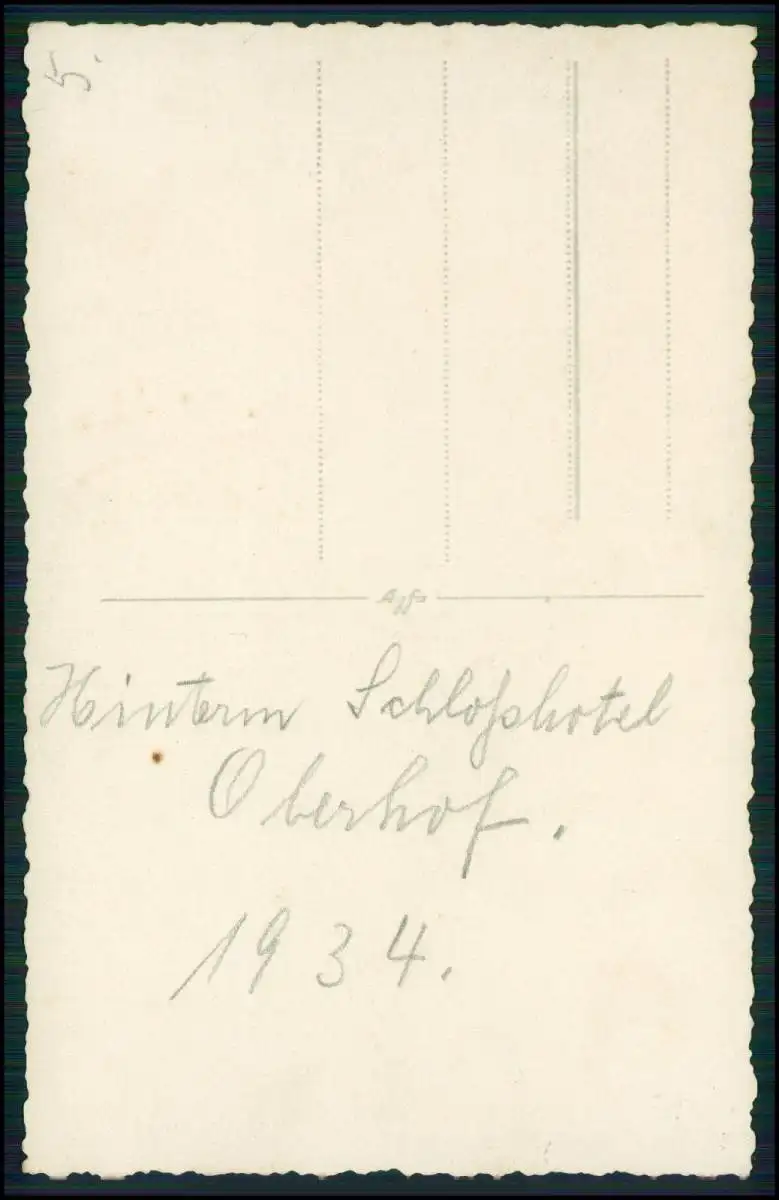 5.
Agfa
Hinterm Schloßhotel
Oberhof.
1934.